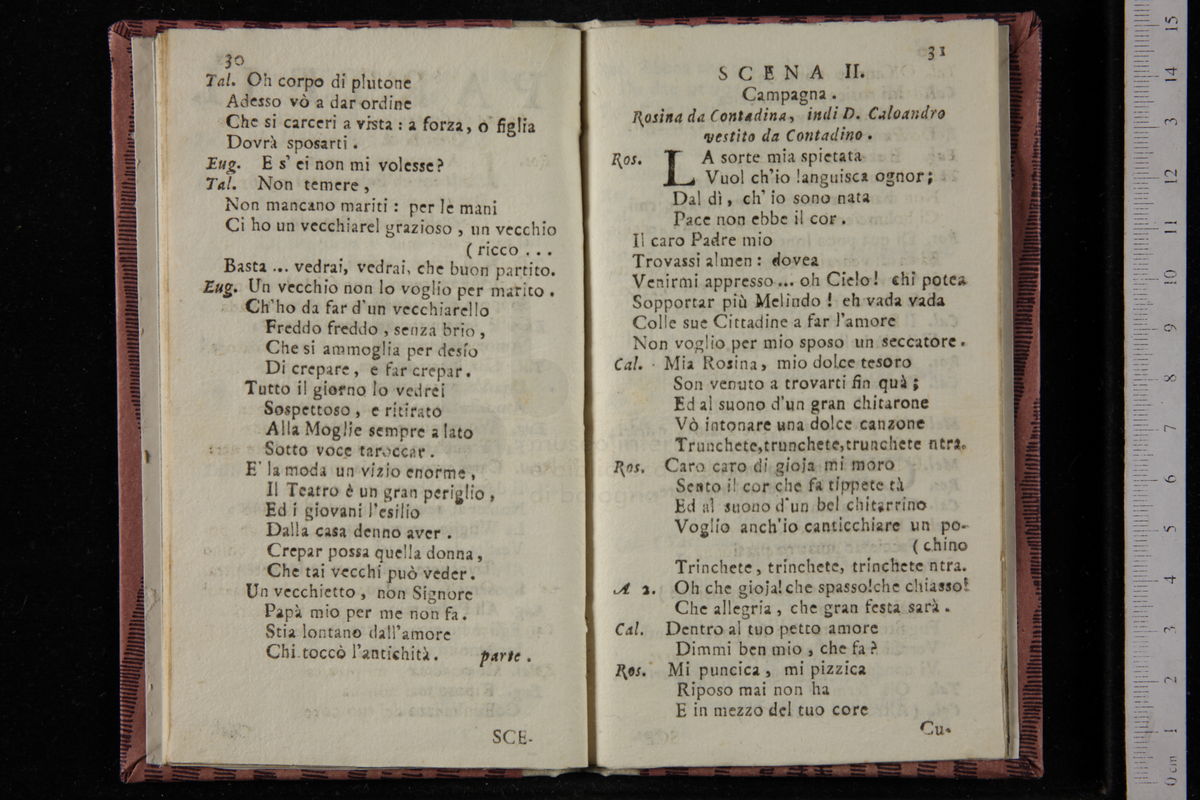 30
Tal. Oh corpo di plutone
Adesso vò a dar ordine
Che si carceri a vista : a forza, o figlia
Dovrà sposarti .
Eug. E s' ei non mi volesse?
Tal. Non temere ,
Non mancano mariti : per le mani
Ci ho un vecchiarel grazioso , un vecchio
( ricco . . .
Basta ... vedrai, vedrai, che buon partito.
Eug. Un vecchio non lo voglio per marito .
Ch'ho da far d'un vecchiarello
Freddo freddo , senza brio ,
Che si ammoglia per desío
Di crepare , e far crepar .
Tutto il giorno lo vedrei
Sospettoso , e ritirato
Alla Moglie sempre a lato
Sotto voce taroccar .
E' la moda un vizio enorme ,
Il Teatro è un gran periglio ,
Ed i giovani l'esilio
Dalla casa denno aver .
Crepar possa quella donna ,
Che tai vecchi può veder .
Un vecchietto , non Signore
Papà mio per me non fa .
Stia lontano dall'amore
Chi toccò l'antichità . parte .
SCE-
31
SCENA II.
Campagna .
Rosina da Contadina, indi D. Caloandro
vestito da Contadino .
Ros. LA sorte mia spietata
Vuol ch'io languisca ognor ;
Dal dì , ch' io sono nata
Pace non ebbe il cor .
Il caro Padre mio
Trovassi almen : dovea
Venirmi appresso ... oh Cielo ! chi potea
Sopportar più Melindo ! eh vada vada
Colle sue Cittadine a far l'amore
Non voglio per mio sposo un seccatore .
Cal. Mia Rosina , mio dolce tesoro
Son venuto a trovarti fin quà ;
Ed al suono d'un gran chitarone
Vò intonare una dolce canzone
Trunchete,trunchete,trunchete ntra.
Ros. Caro caro di gioja mi moro
Sento il cor che fa tippete tà
Ed al suono d'un bel chitarrino
Voglio anch'io canticchiare un po-
( chino
Trinchete , trinchete, trinchete ntra.
A 2. Oh che gioja! che spasso!che chiasso!
Che allegria , che gran festa sarà .
Cal. Dentro al tuo petto amore
Dimmi ben mio , che fa ?
Ros. Mi puncica , mi pizzica
Riposo mai non ha
E in mezzo del tuo core
Cu-
0 cm 1 2 3 4 5 6 7 8 9 10 11 12 13 14 15